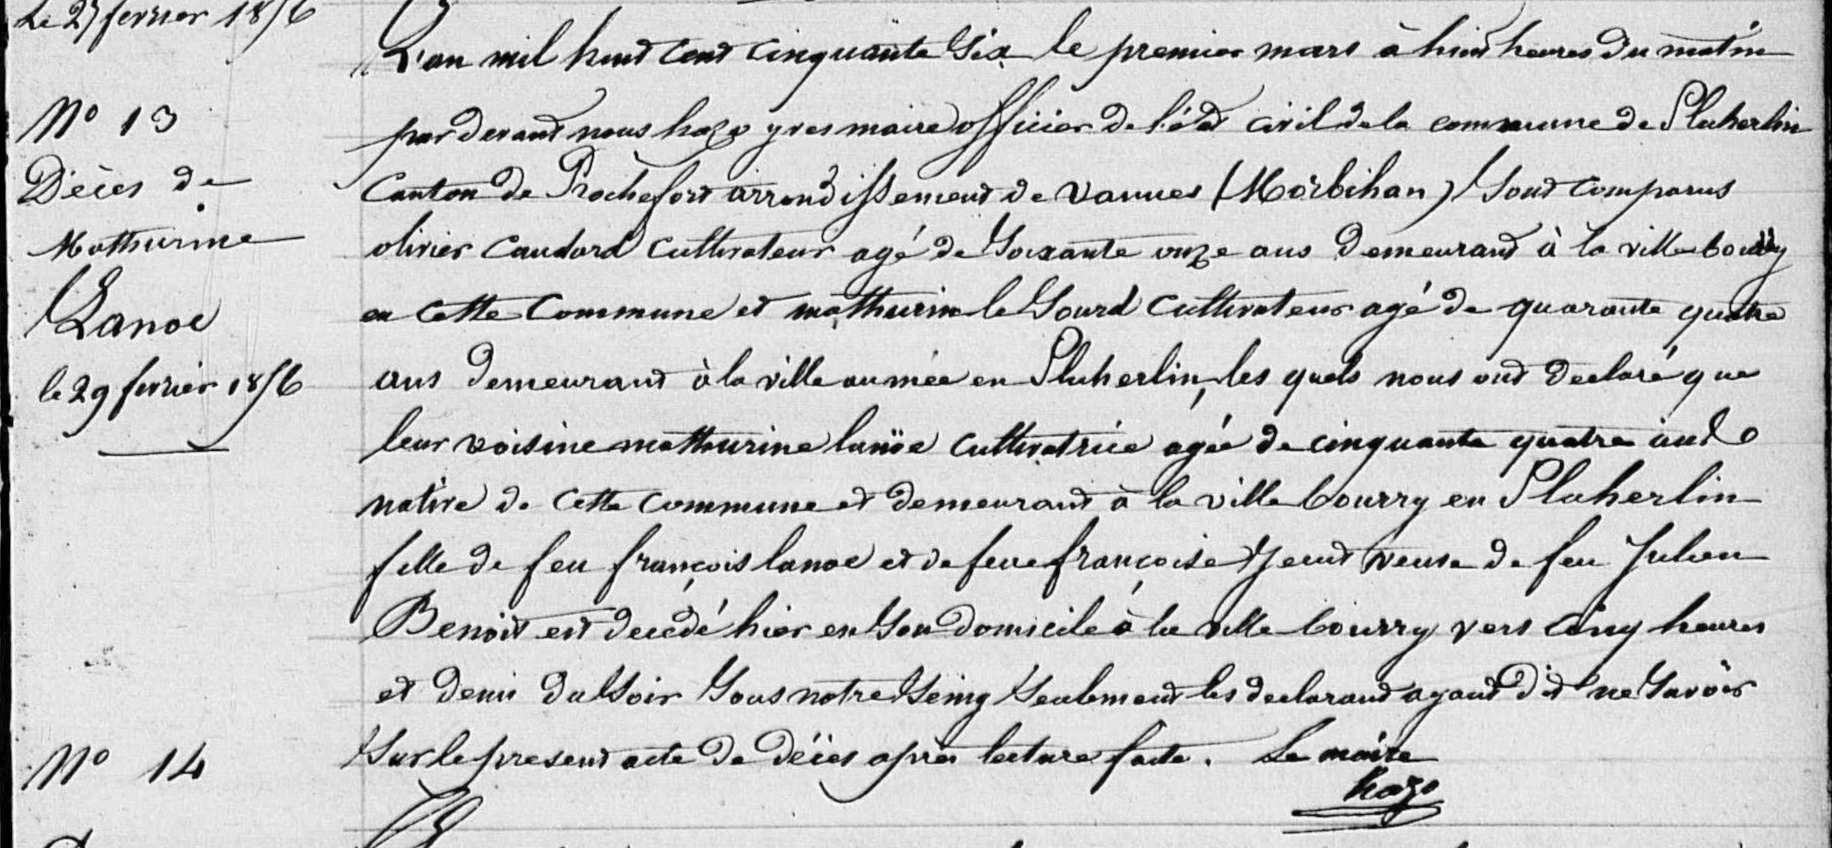 Le 27 fevrier 1856
L'an mil huit cent cinquante six le premier mars à huit heures du matin
N° 13
par devant nous hazo yves maire officier de l'état civil de la commune de Pluherlin
Décès de
Canton de Rochefort arrondissement de Vannes (Morbihan) sont comparus
Mathurine
olivier Caudard cultivateur agé de soixante onze ans demeurant à la ville bourry
Lanoe
en cette commune et mathurin le Sourd cultivateur agé de quarante quatre
le 29 fevrier 1856
ans demeurant à la ville aumée en Pluherlin, les quels nous ont declaré que
leur voisine mathurine lanoe cultivatrice agée de cinquante quatre ans
native de cette commune et demeurant à la ville bourry en Pluherlin
fille de feu françois lanoe et de feue françoise veuve de feu Julien
Benoit est decedé hier en son domicile à la ville bourry vers cinq heures
et demi du soir sous notre seing seulement les declarant ayant dit ne savoir
N° 14
sur le present acte de décès après lecture faite. Le maire
hazo